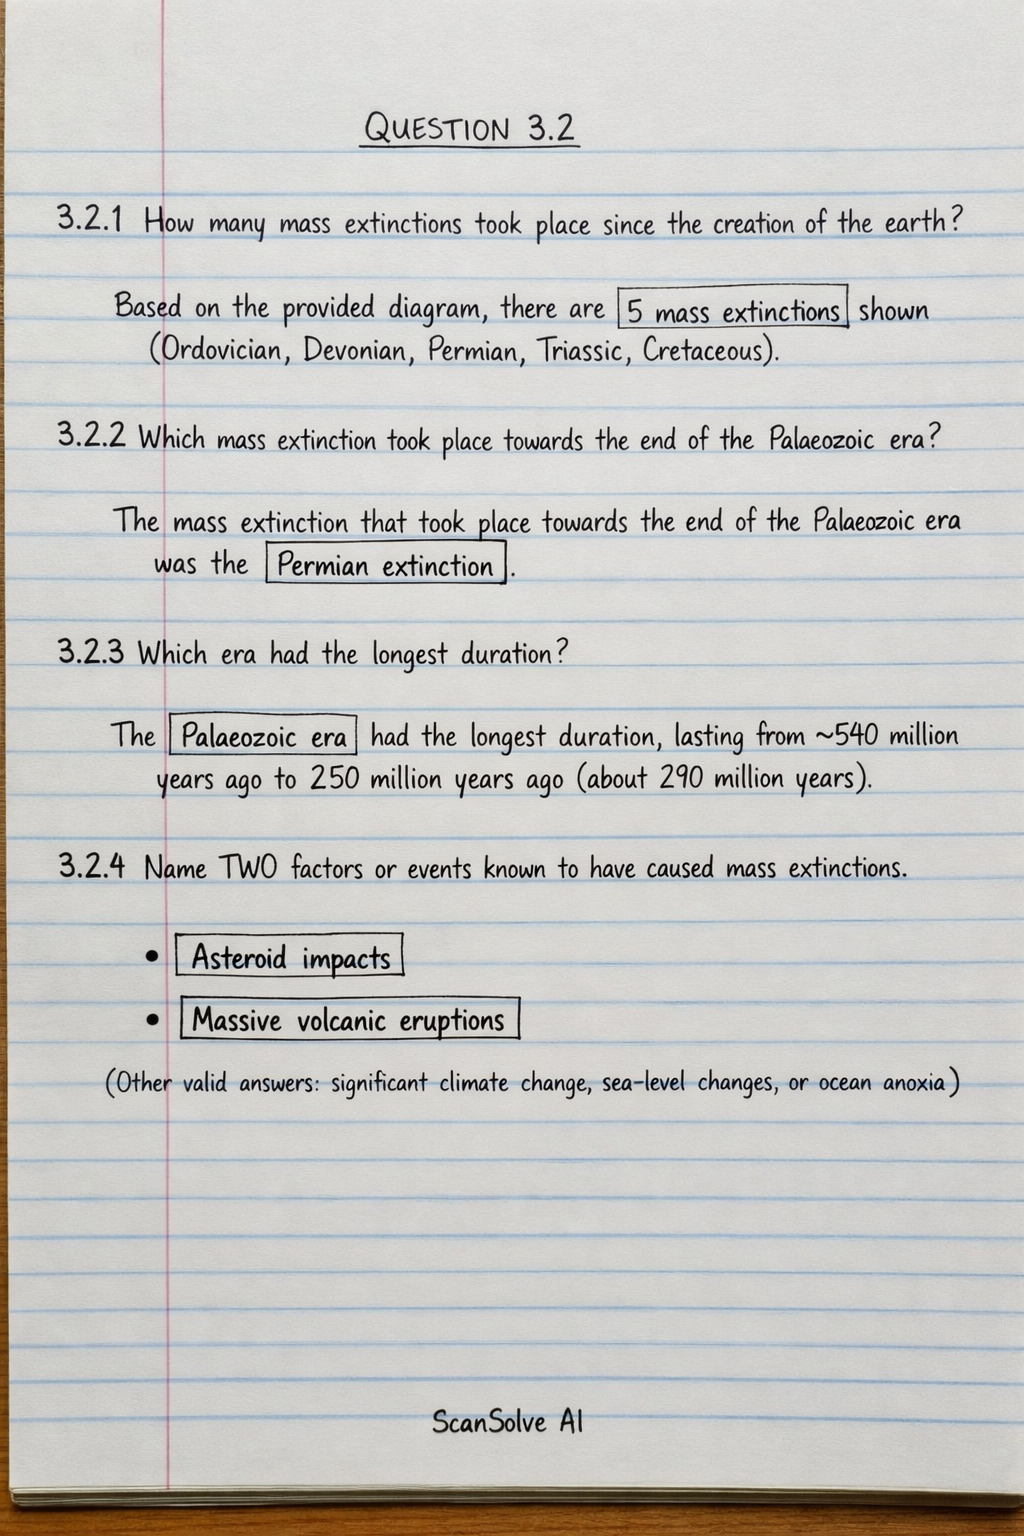 QUESTION 3.2
3.2.1 How many mass extinctions took place since the creation of the earth?
Based on the provided diagram, there are 5 mass extinctions shown
(Ordovician, Devonian, Permian, Triassic, Cretaceous).
3.2.2 Which mass extinction took place towards the end of the Palaeozoic era?
The mass extinction that took place towards the end of the Palaeozoic era
was the Permian extinction.
3.2.3 Which era had the longest duration?
The Palaeozoic era had the longest duration, lasting from ~540 million
years ago to 250 million years ago (about 290 million years).
3.2.4 Name TWO factors or events known to have caused mass extinctions.
• Asteroid impacts
• Massive volcanic eruptions
(Other valid answers: significant climate change, sea-level changes, or ocean anoxia)
ScanSolve AI